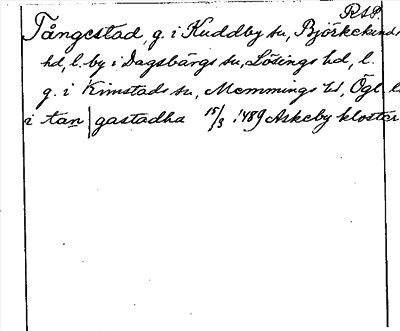 RAP.
Tångestad, g. i Kuddby sn, Björkekinds
hd, l. by i Dagsbärgs sn, Lösings hd, l.
g. i Kimstads sn, Memmings hd, Ögl. l.
i tan|gastadha 15/3 1489 Askeby kloster